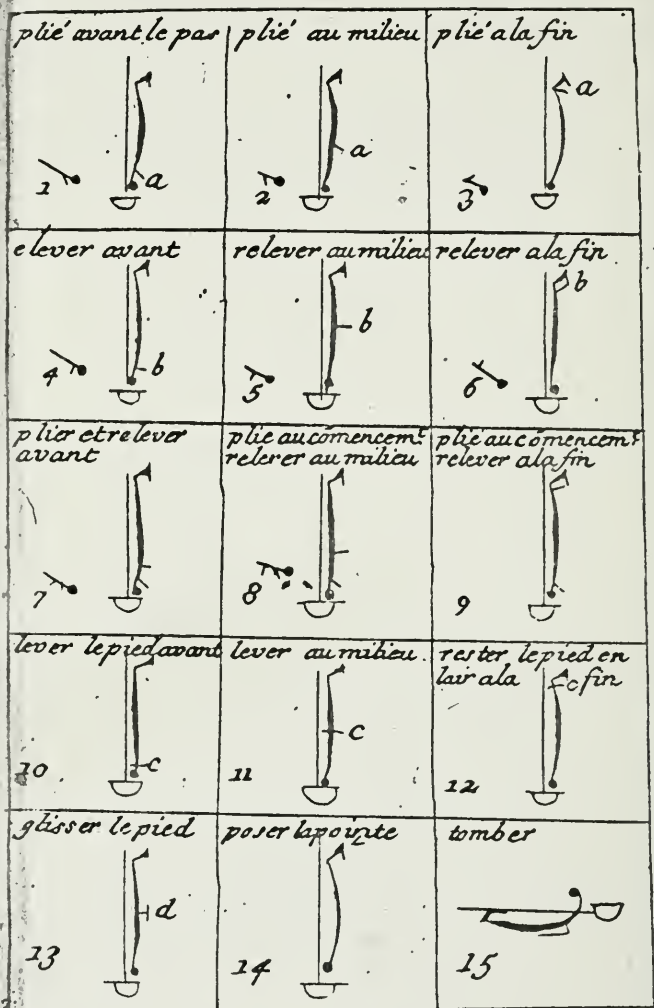 plié avant le pas
a
1
plié au milieu
a
2
plié a la fin
a
3
elever avant
b
4
relever au milieu
b
5
relever a la fin
b
6
plier et relever
avant
7
plie au comencemt
relever au milieu
8
plie au comencemt
relever a la fin
9
lever le pied avant
c
10
lever au milieu
c
11
rester le pied en
lair a la c fin
12
glisser le pied
d
13
poser la pointe
14
tomber
15